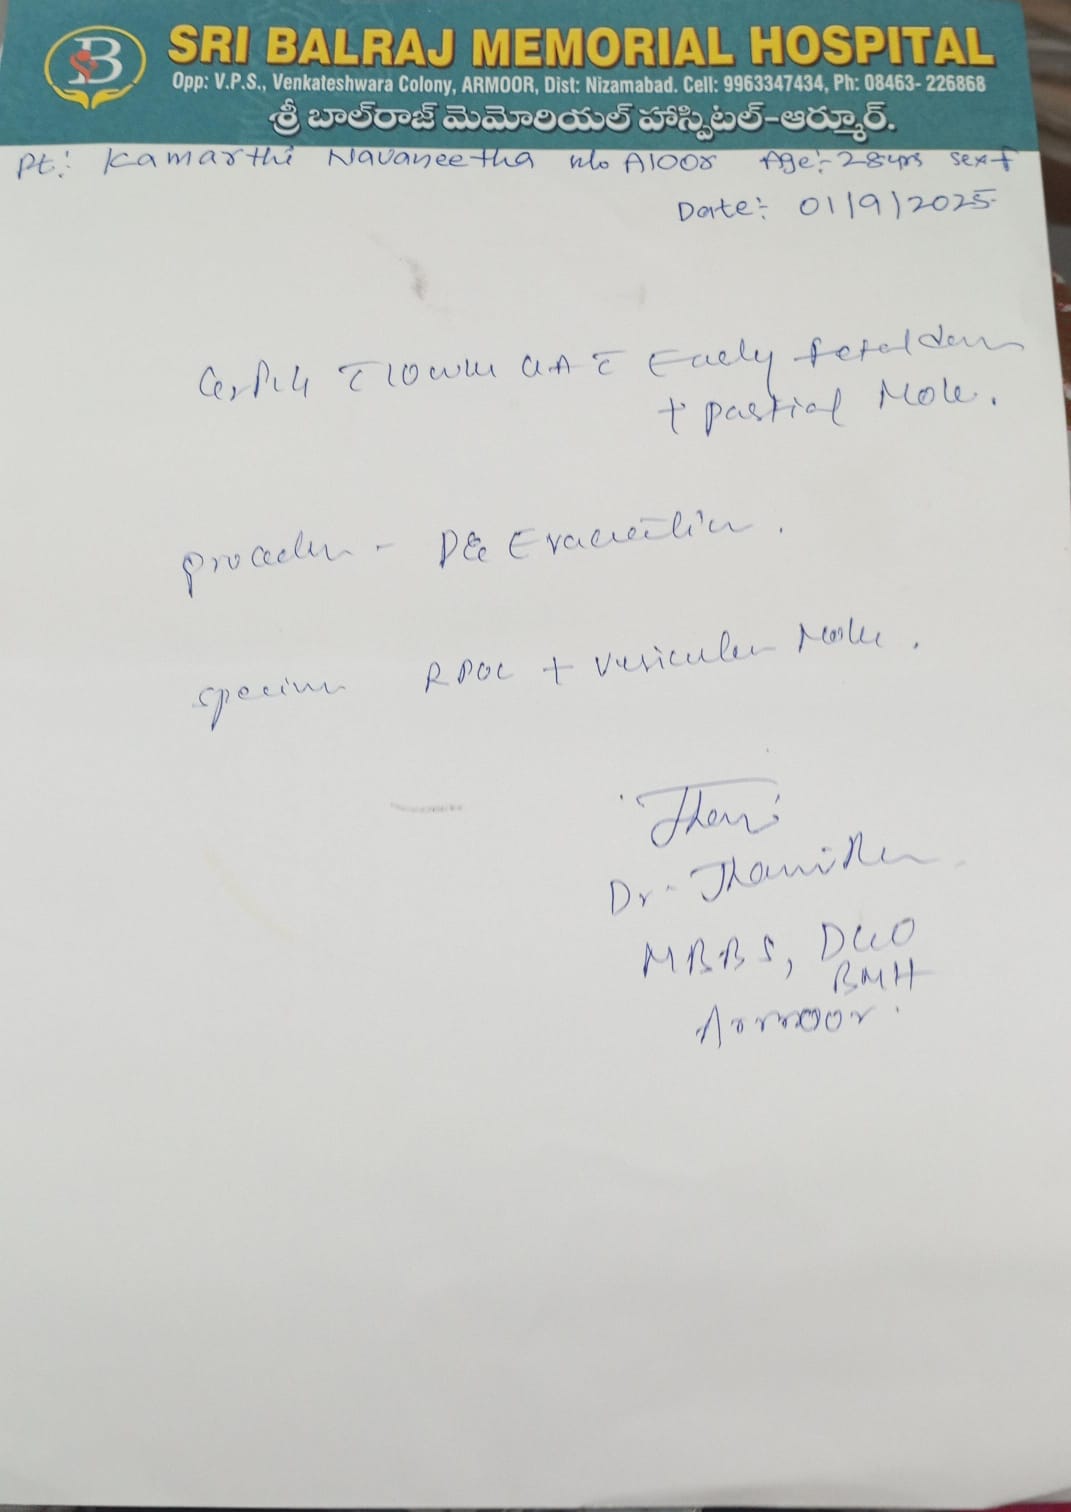 B
SRI BALRAJ MEMORIAL HOSPITAL
Opp: V.P.S., Venkateshwara Colony, ARMOOR, Dist: Nizamabad. Cell: 9963347434, Ph: 08463- 226868
శ్రీ బాల్‌రాజ్ మెమోరియల్ హాస్పిటల్-ఆర్మూర్.
Pt:- Kamarthi Navaneetha w/o A1008 Age:- 28yrs Sex-f
Date:- 01/9/2025
Early fetal
+ partial Mole.
D&E Evacuation.
RPOC + Vesicular Mole.
Dr.
MBBS, DGO
BMH
Armoor.